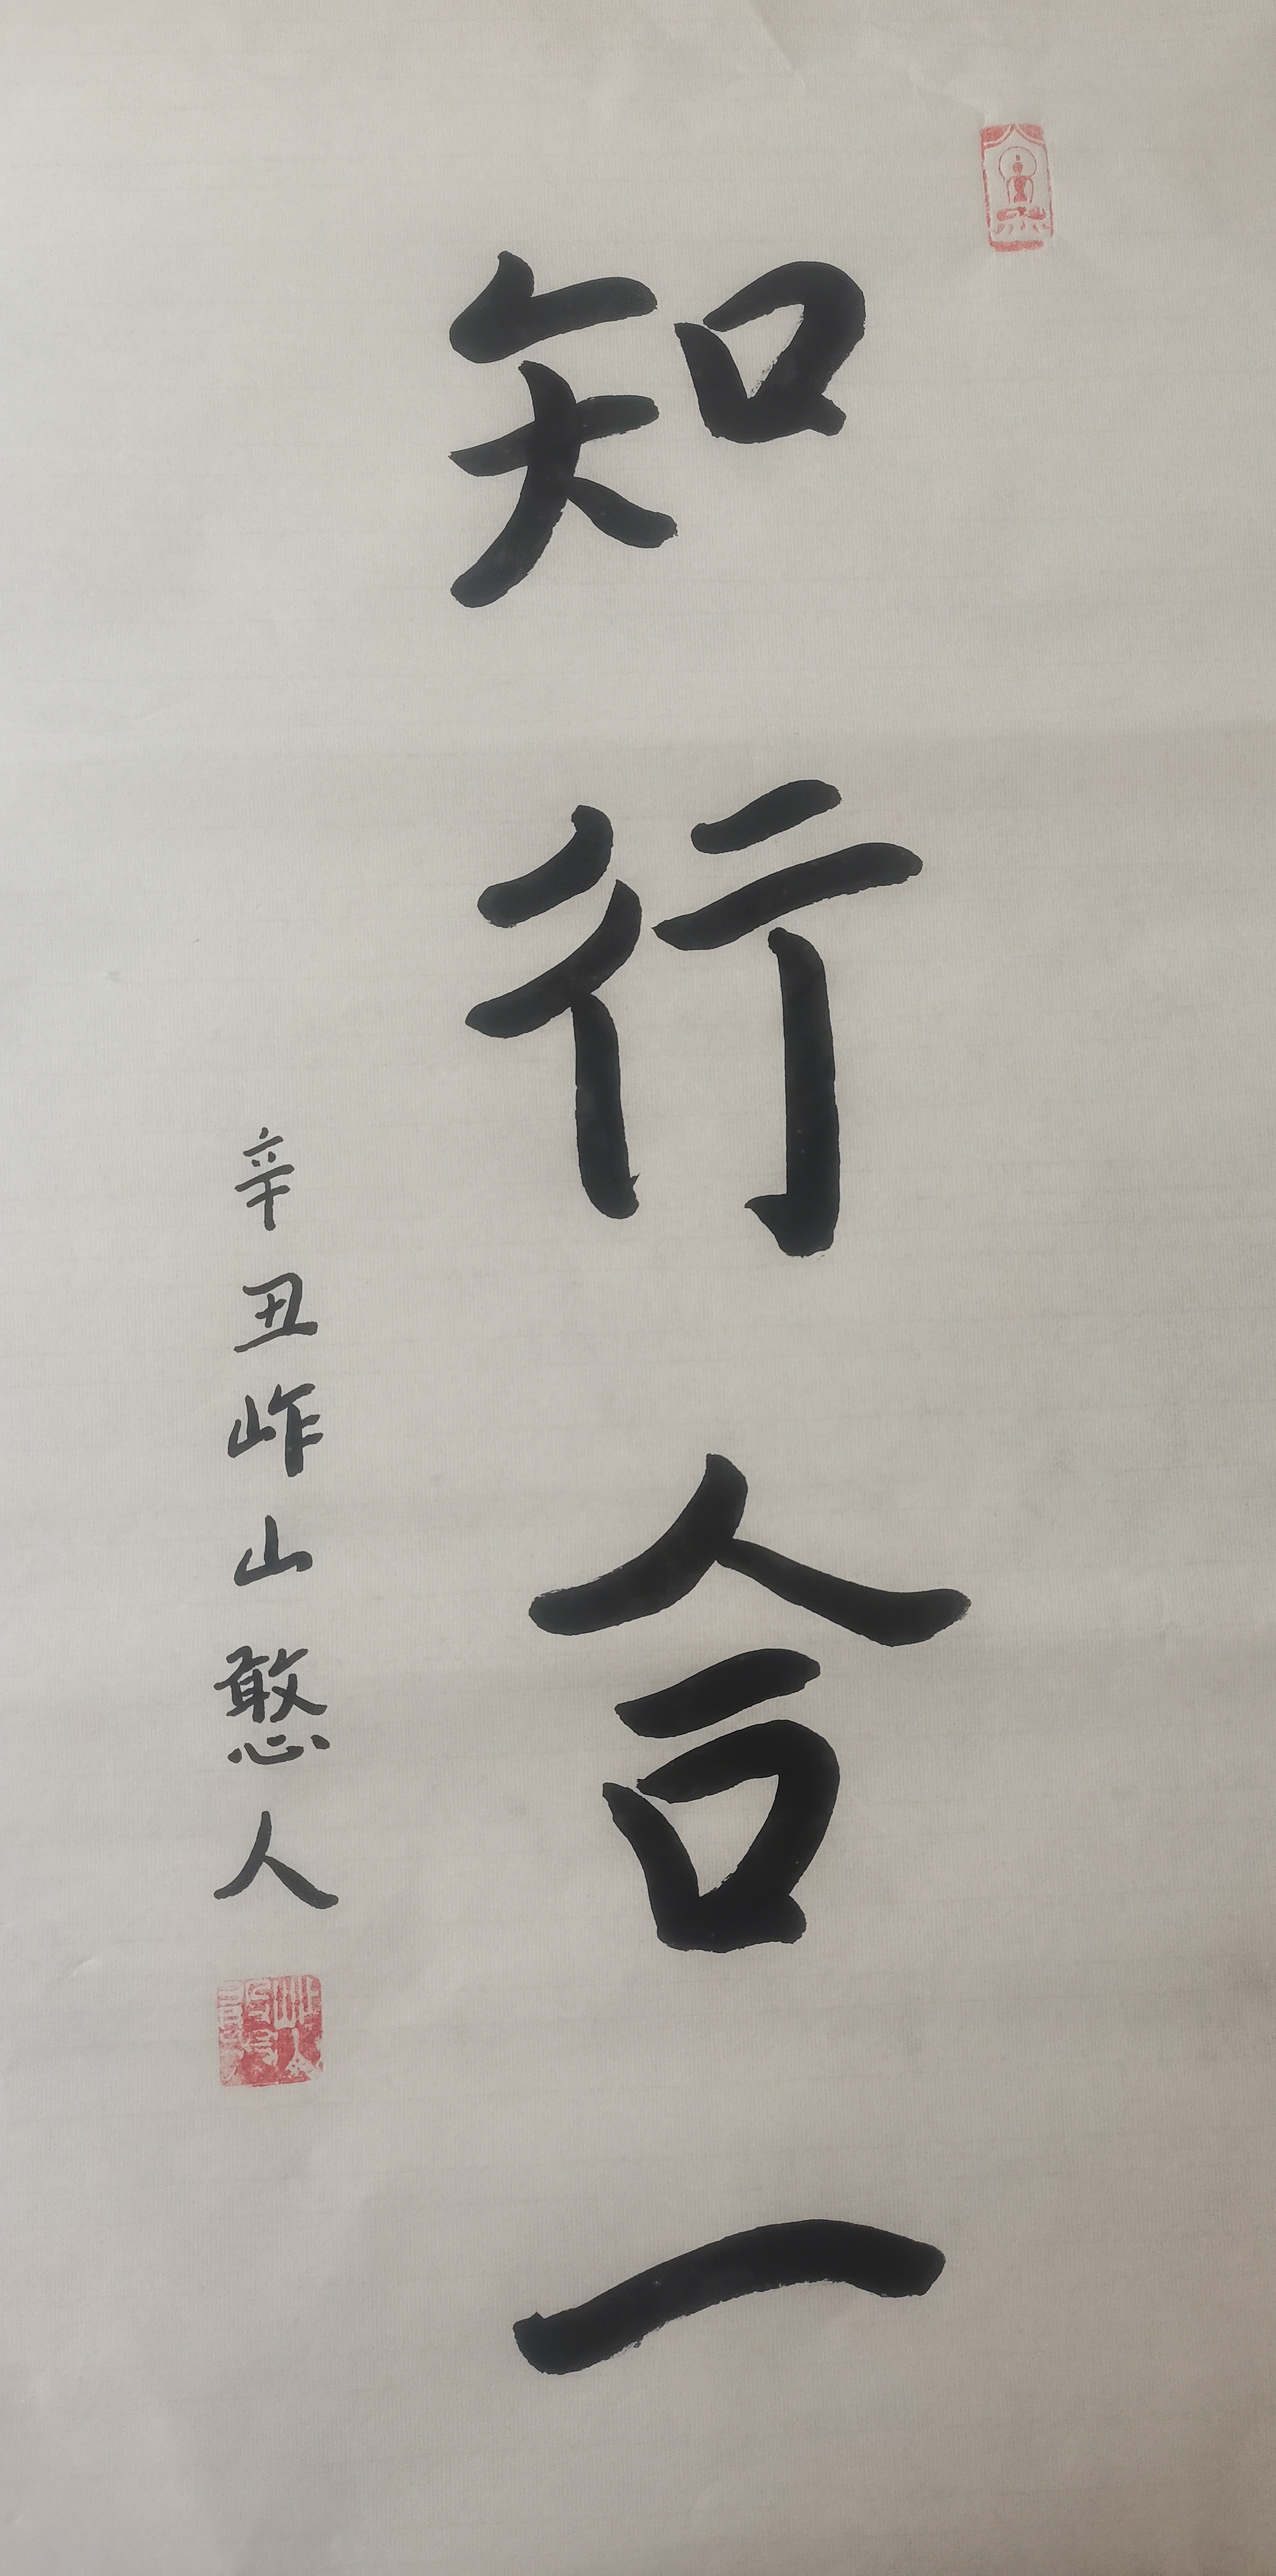 知行合一
辛丑岞山憨人